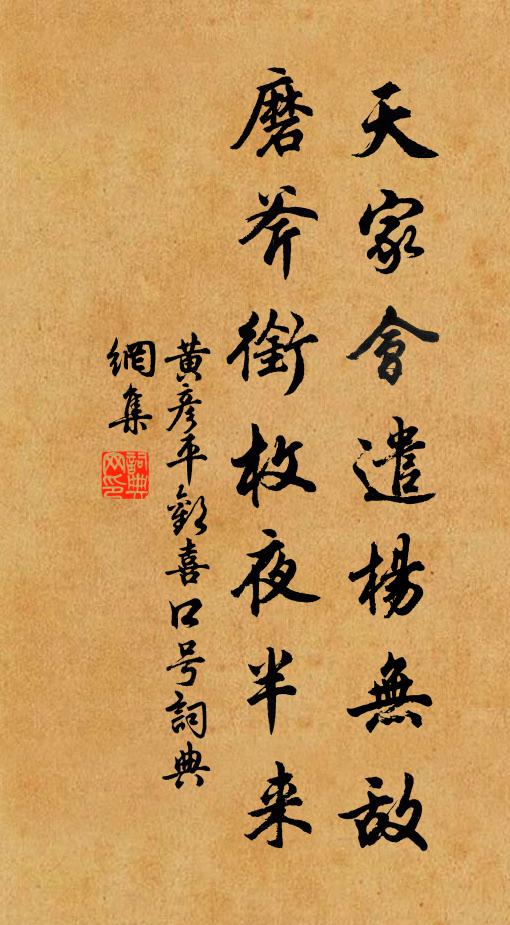 天家會遣楊無敵
磨斧銜枚夜半来
黄彦平歡喜口号詞典
網集
詞典網印